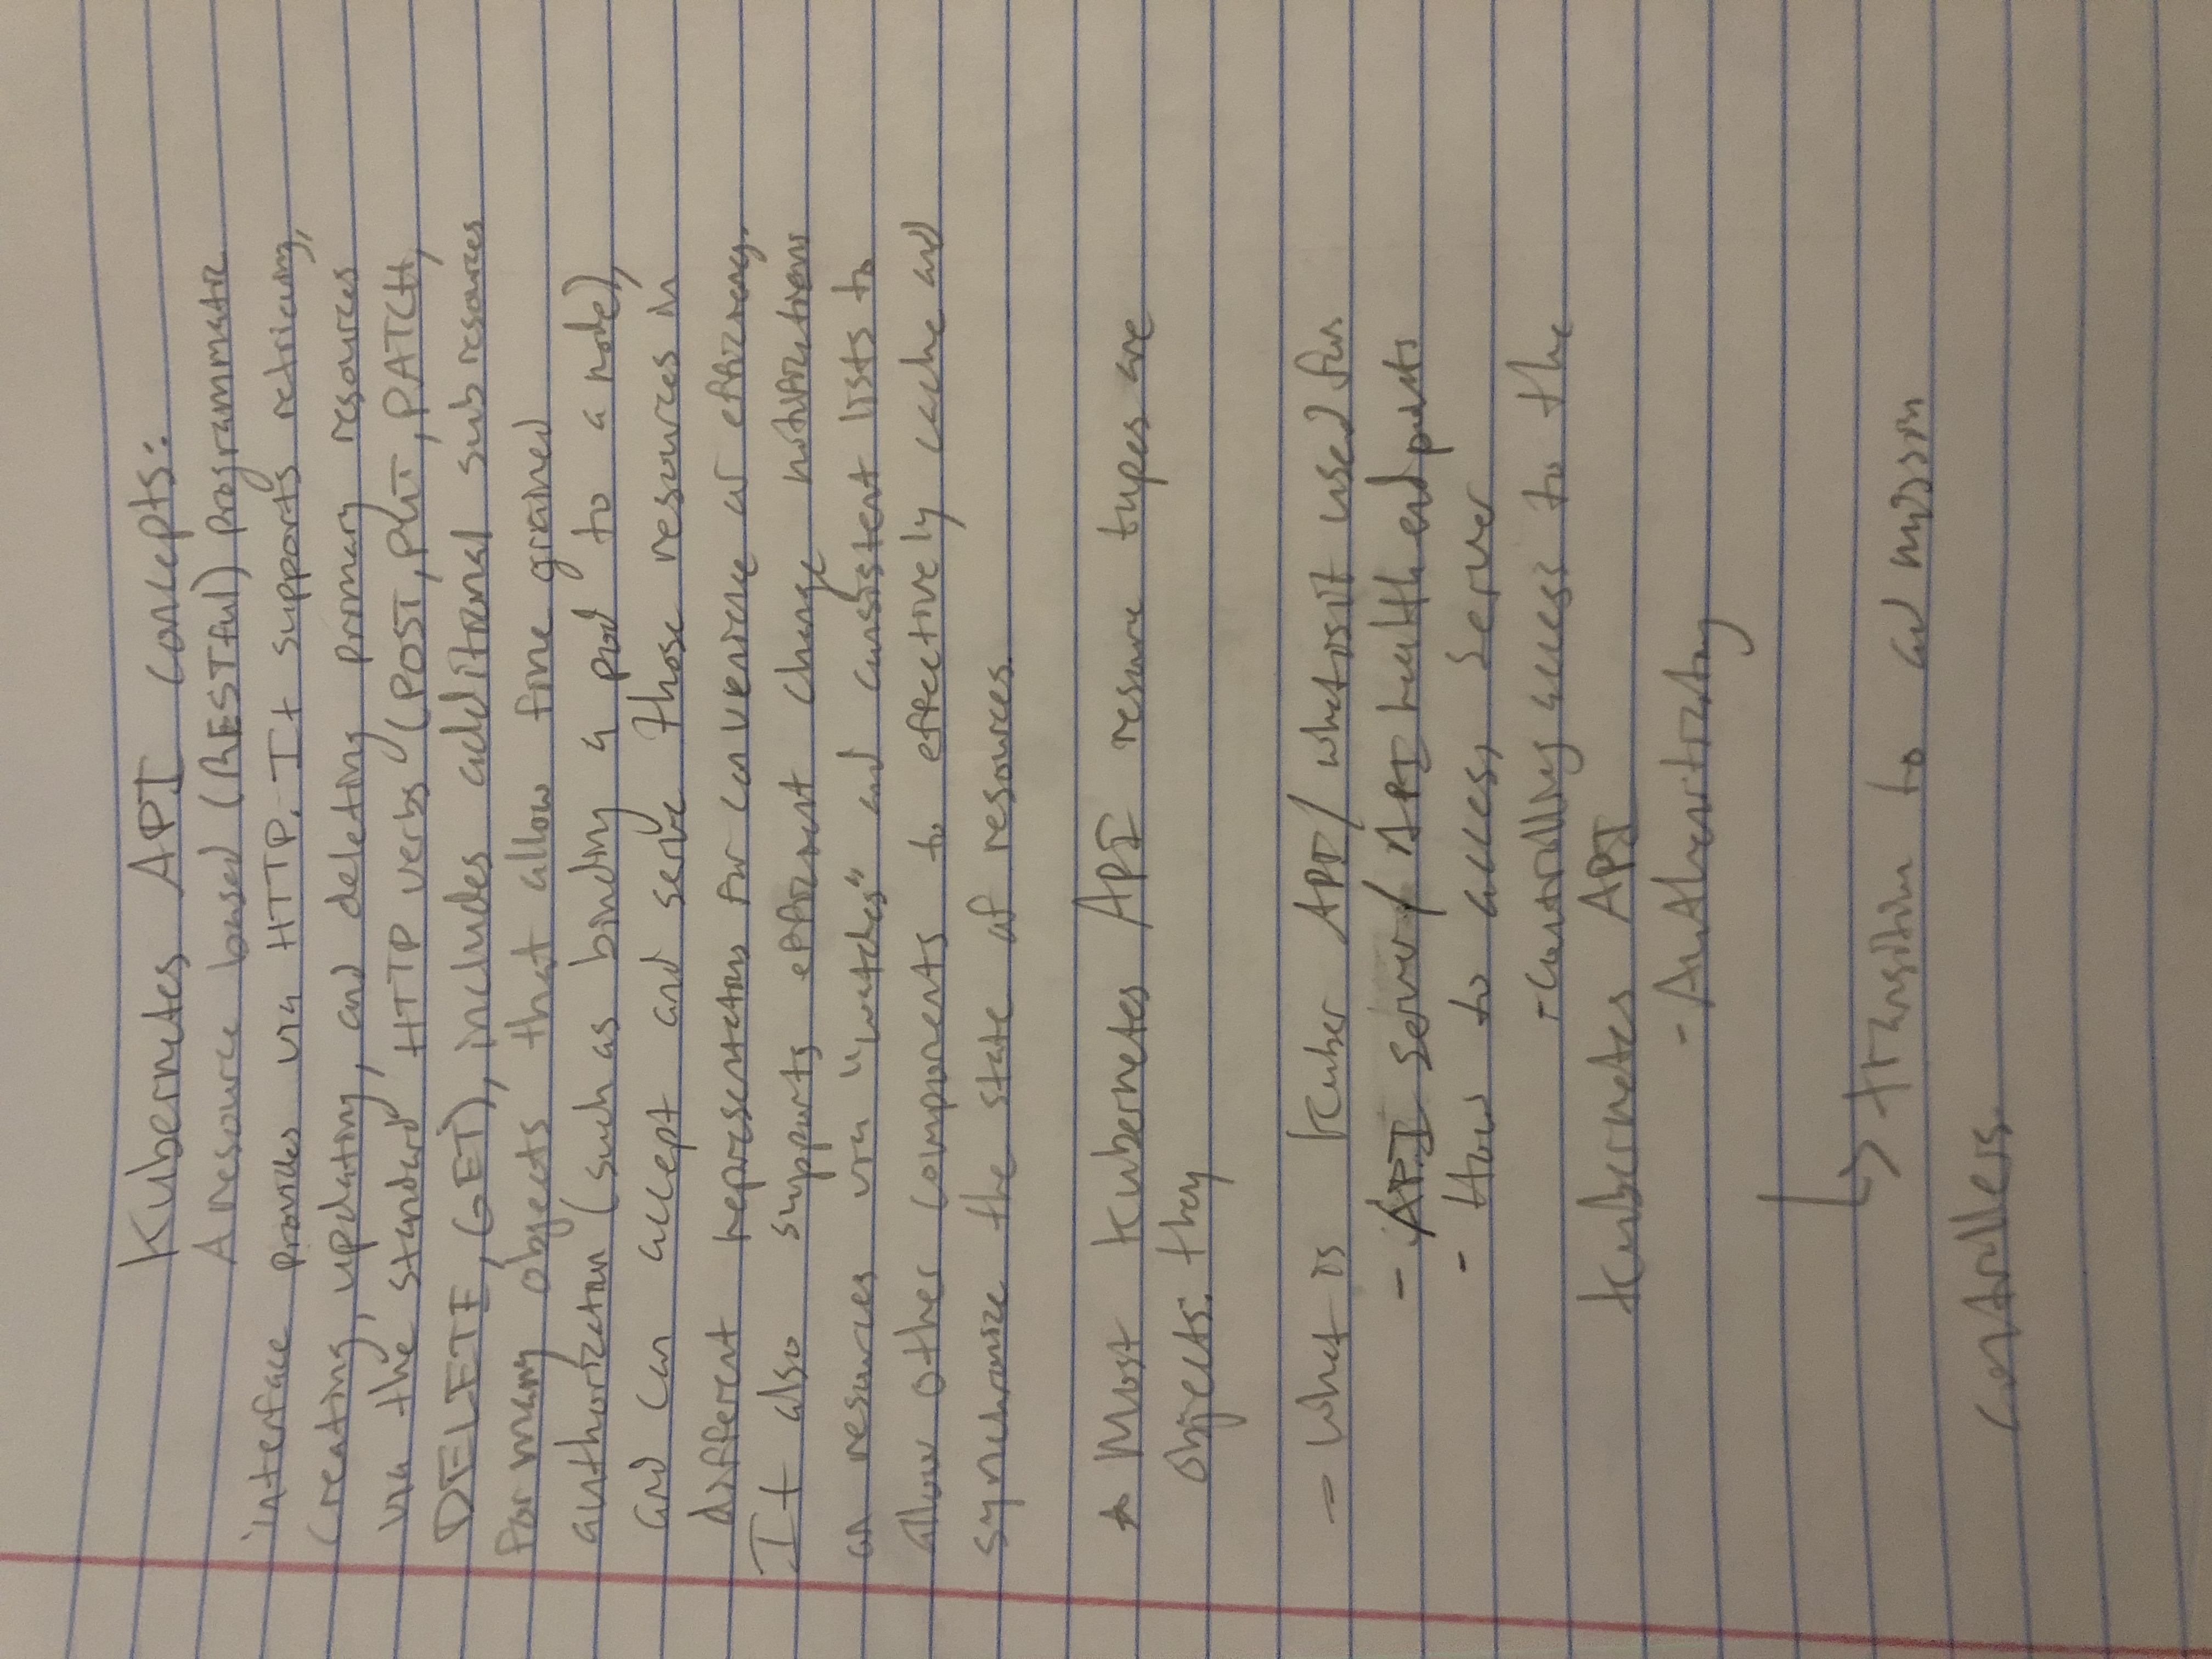 Kubernetes API concepts:
A resource based (RESTful) programmatic
interface provides via HTTP. It supports retrieving,
creating, updating, and deleting primary resources
via the standard HTTP verbs (POST, PUT, PATCH,
DELETE, GET), includes additional subresources
for many objects that allow fine grained
authorization (such as binding a pod to a node),
and can accept and serve those resources in
different representations for convenience or efficiency.
It also supports efficient change notifications
on resources via "watches" and consistent lists to
allow other components to effectively cache and
synchronize the state of resources.
* Most Kubernetes API resource types are
objects: they
- What is Kuber API/ what is it used for
- API Server/ API health endpoints
- How to access Server
- Controlling access to the
Kubernetes API
- Authenticating
↳ transition to admission
controllers.